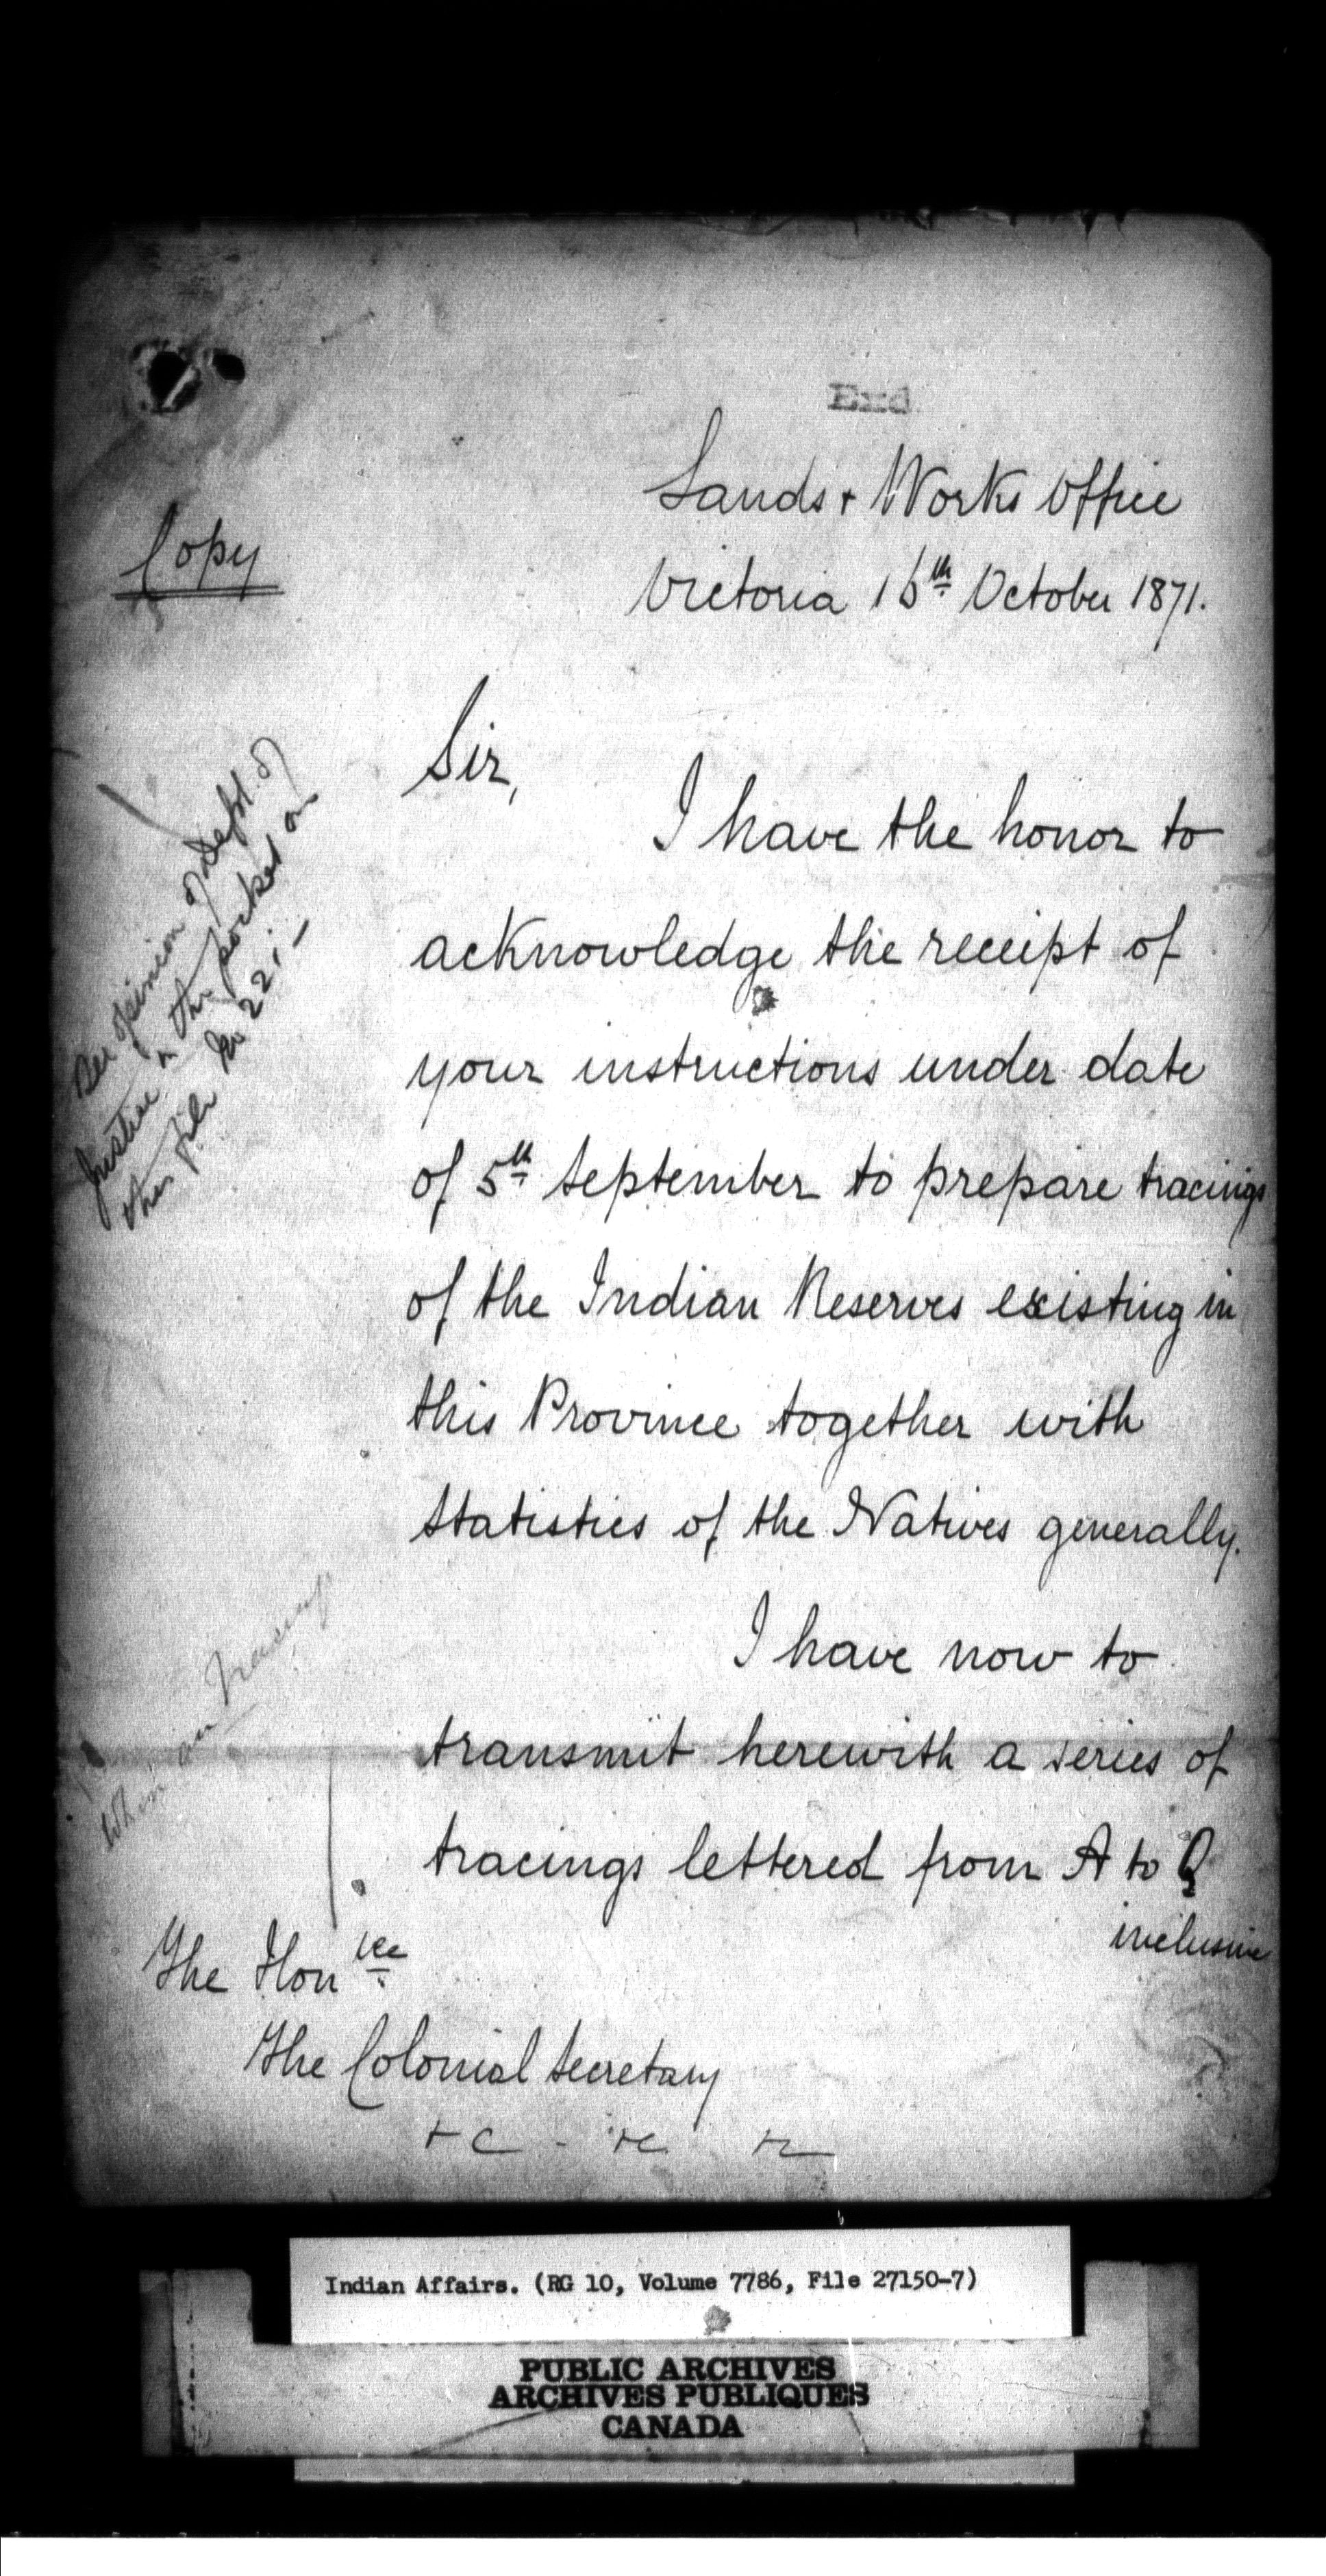 End
Lands & Works Office
Copy
Victoria 16th October 1871.
Sir,
I have the honor to
acknowledge the receipt of
your instructions under date
of 5th September to prepare tracings
of the Indian Reserves existing in
this Province together with
Statistics of the Natives generally.
I have now to
transmit herewith a series of
tracings lettered from A to Q
inclusive
The Honble
The Colonial Secretary
&c - &c &c
See opinion of Dept. of
Justice in the pocket on
this file No 221-
tracings
Indian Affairs. (RG 10, Volume 7786, File 27150-7)
PUBLIC ARCHIVES
ARCHIVES PUBLIQUES
CANADA